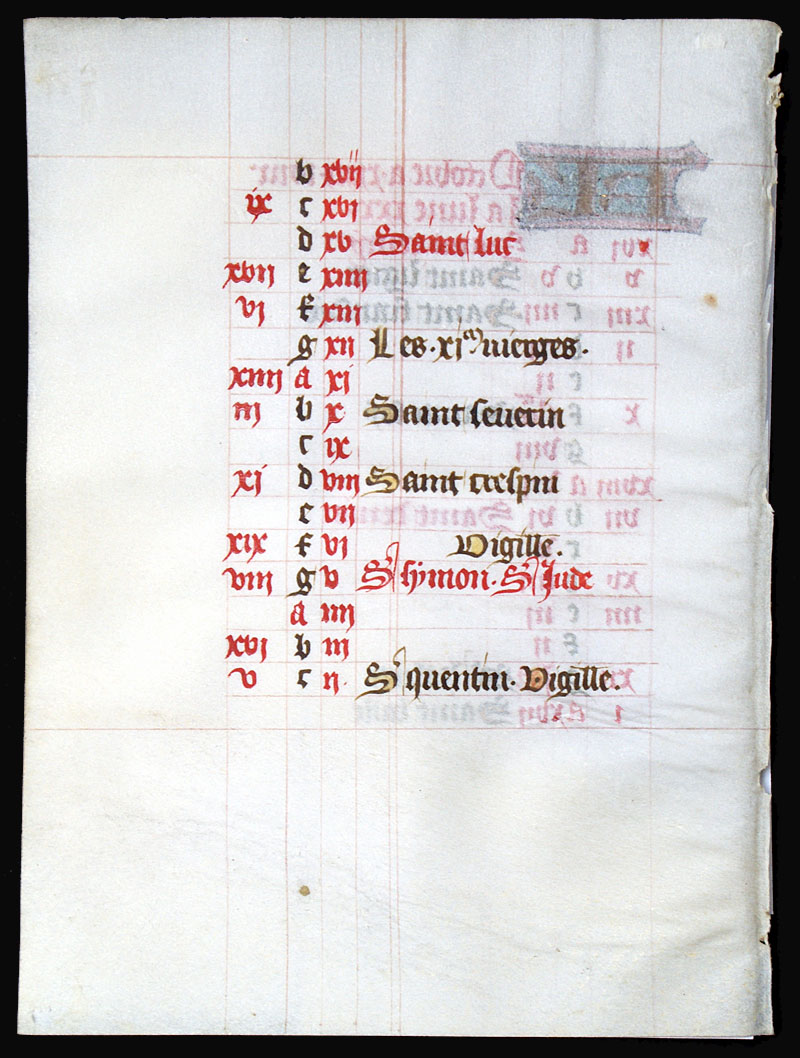 b xvij
ix c xvi
d xv Saint luc
xvij e xiiij
vj f xiij
g xij Les .xj.ᵐ vierges.
xiiij a xi
iij b x Saint severin
c ix
xj d viij Saint crespin
e vij
xix f vj Vigille.
viij g v Sᵗ symon. Sᵗ Jude
a iiij
xvj b iij
v c ij. Sᵗ quentin. Vigille.